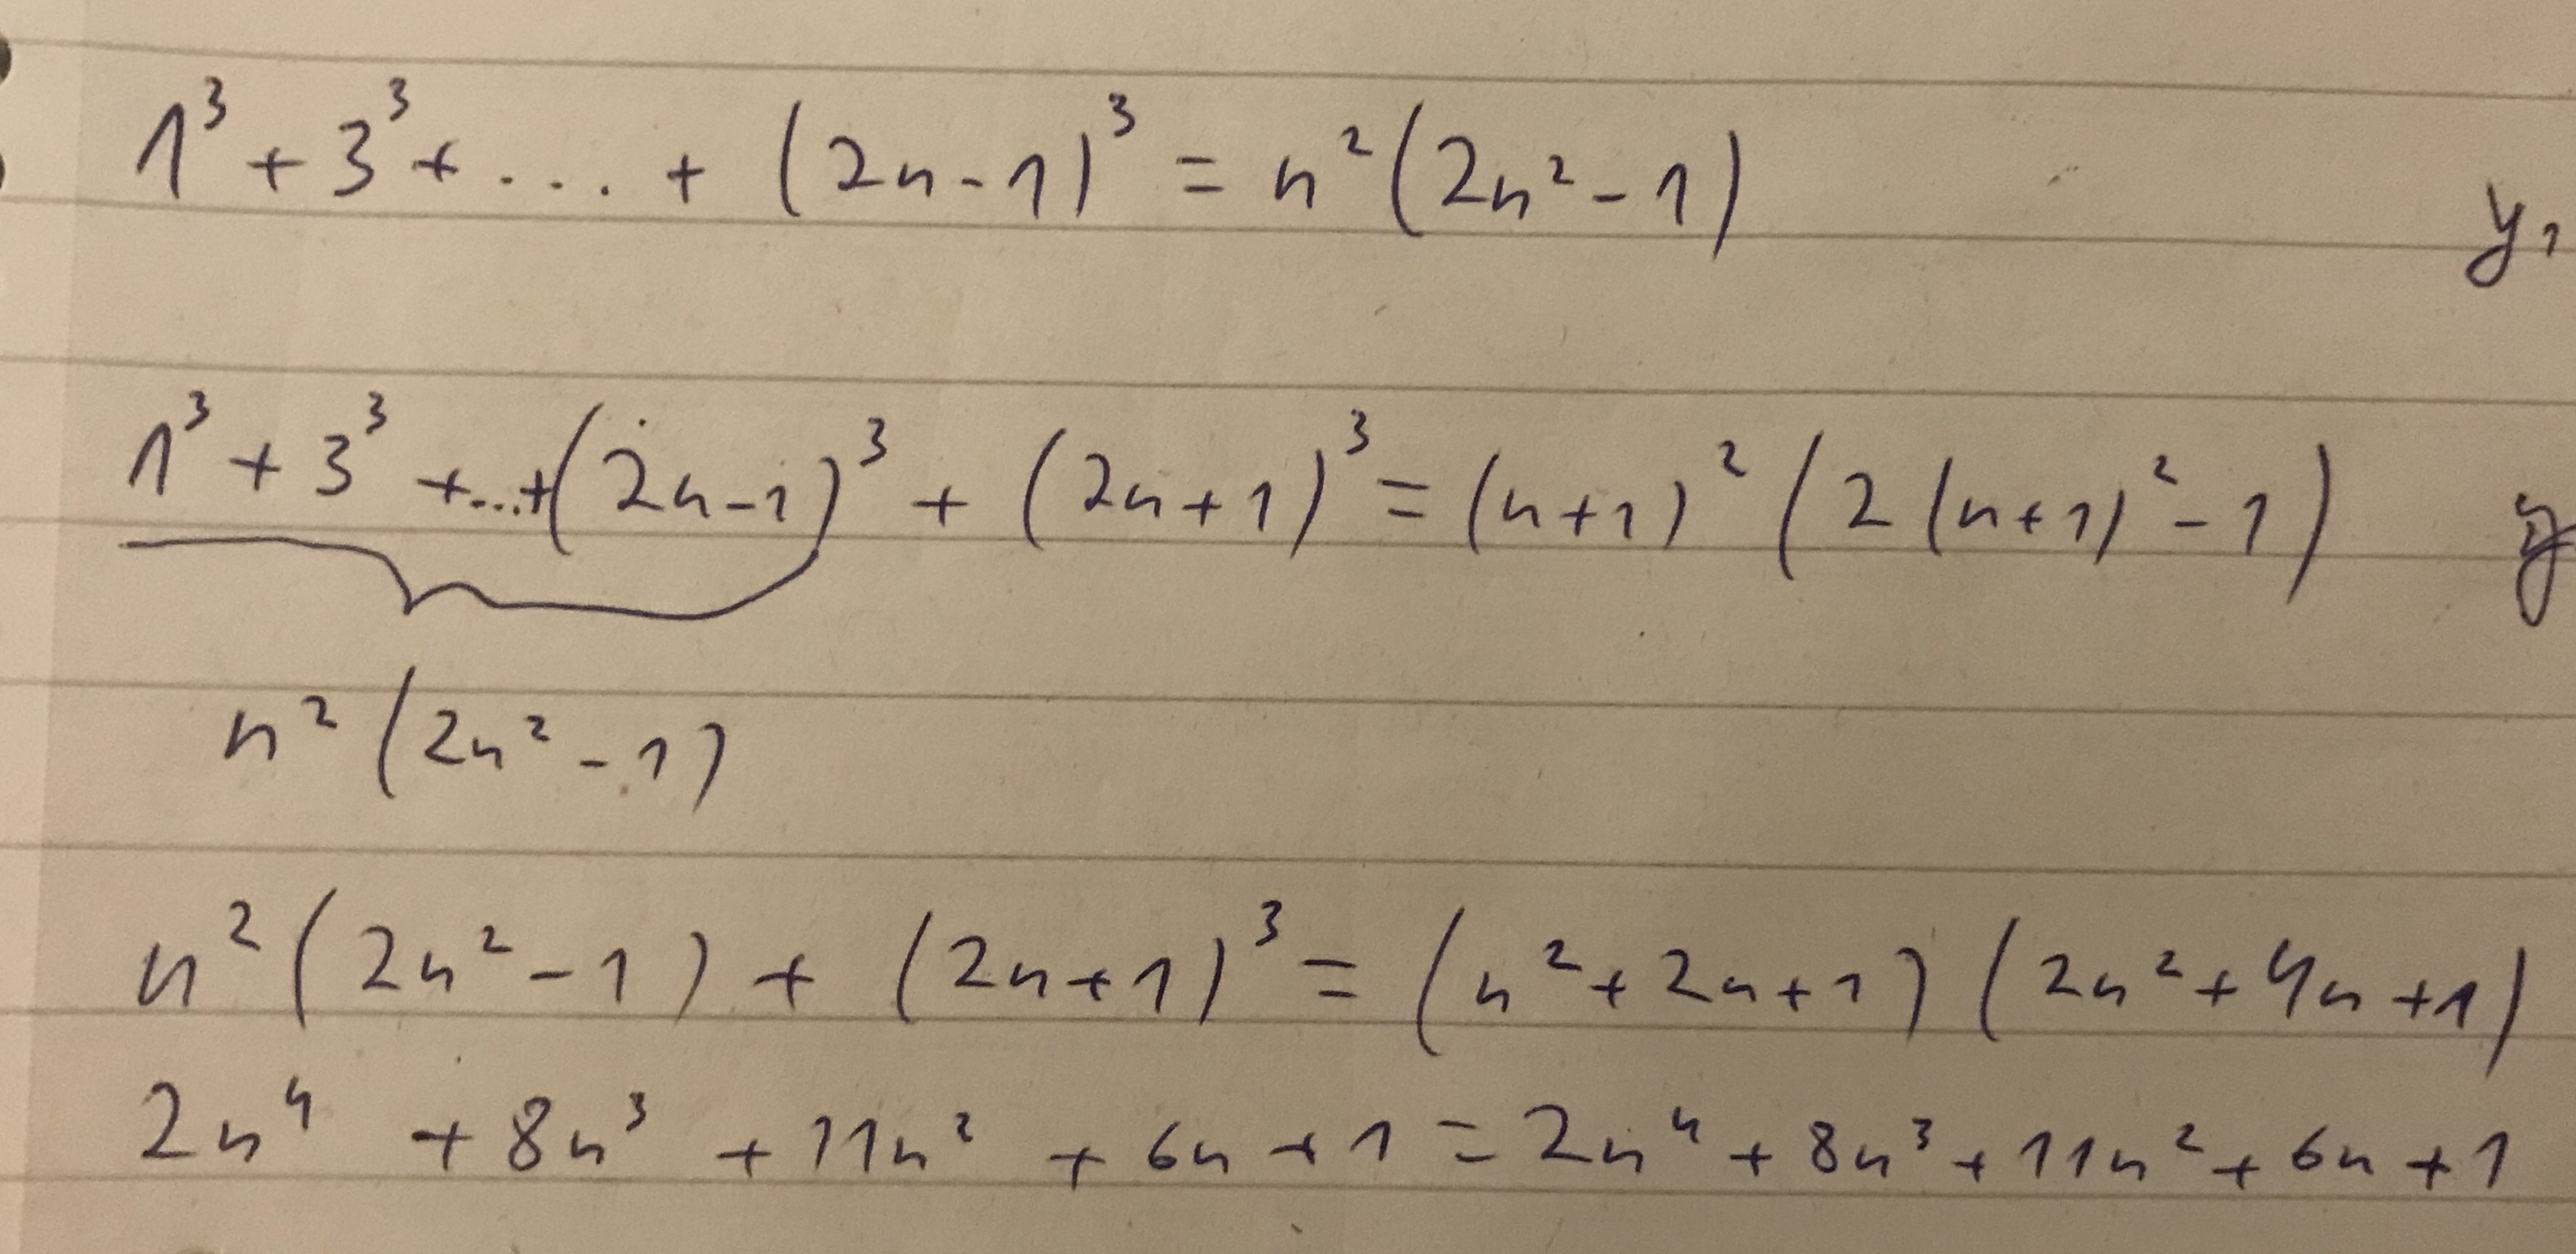 1³ + 3³ + .... + (2n-1)³ = n²(2n²-1) y₁
1³ + 3³ +...+(2n-1)³ + (2n+1)³ = (n+1)²(2(n+1)²-1) y
n²(2n²-1)
n²(2n²-1) + (2n+1)³ = (n²+2n+1)(2n²+4n+1)
2n⁴ + 8n³ + 11n² + 6n + 1 = 2n⁴ + 8n³ + 11n² + 6n + 1